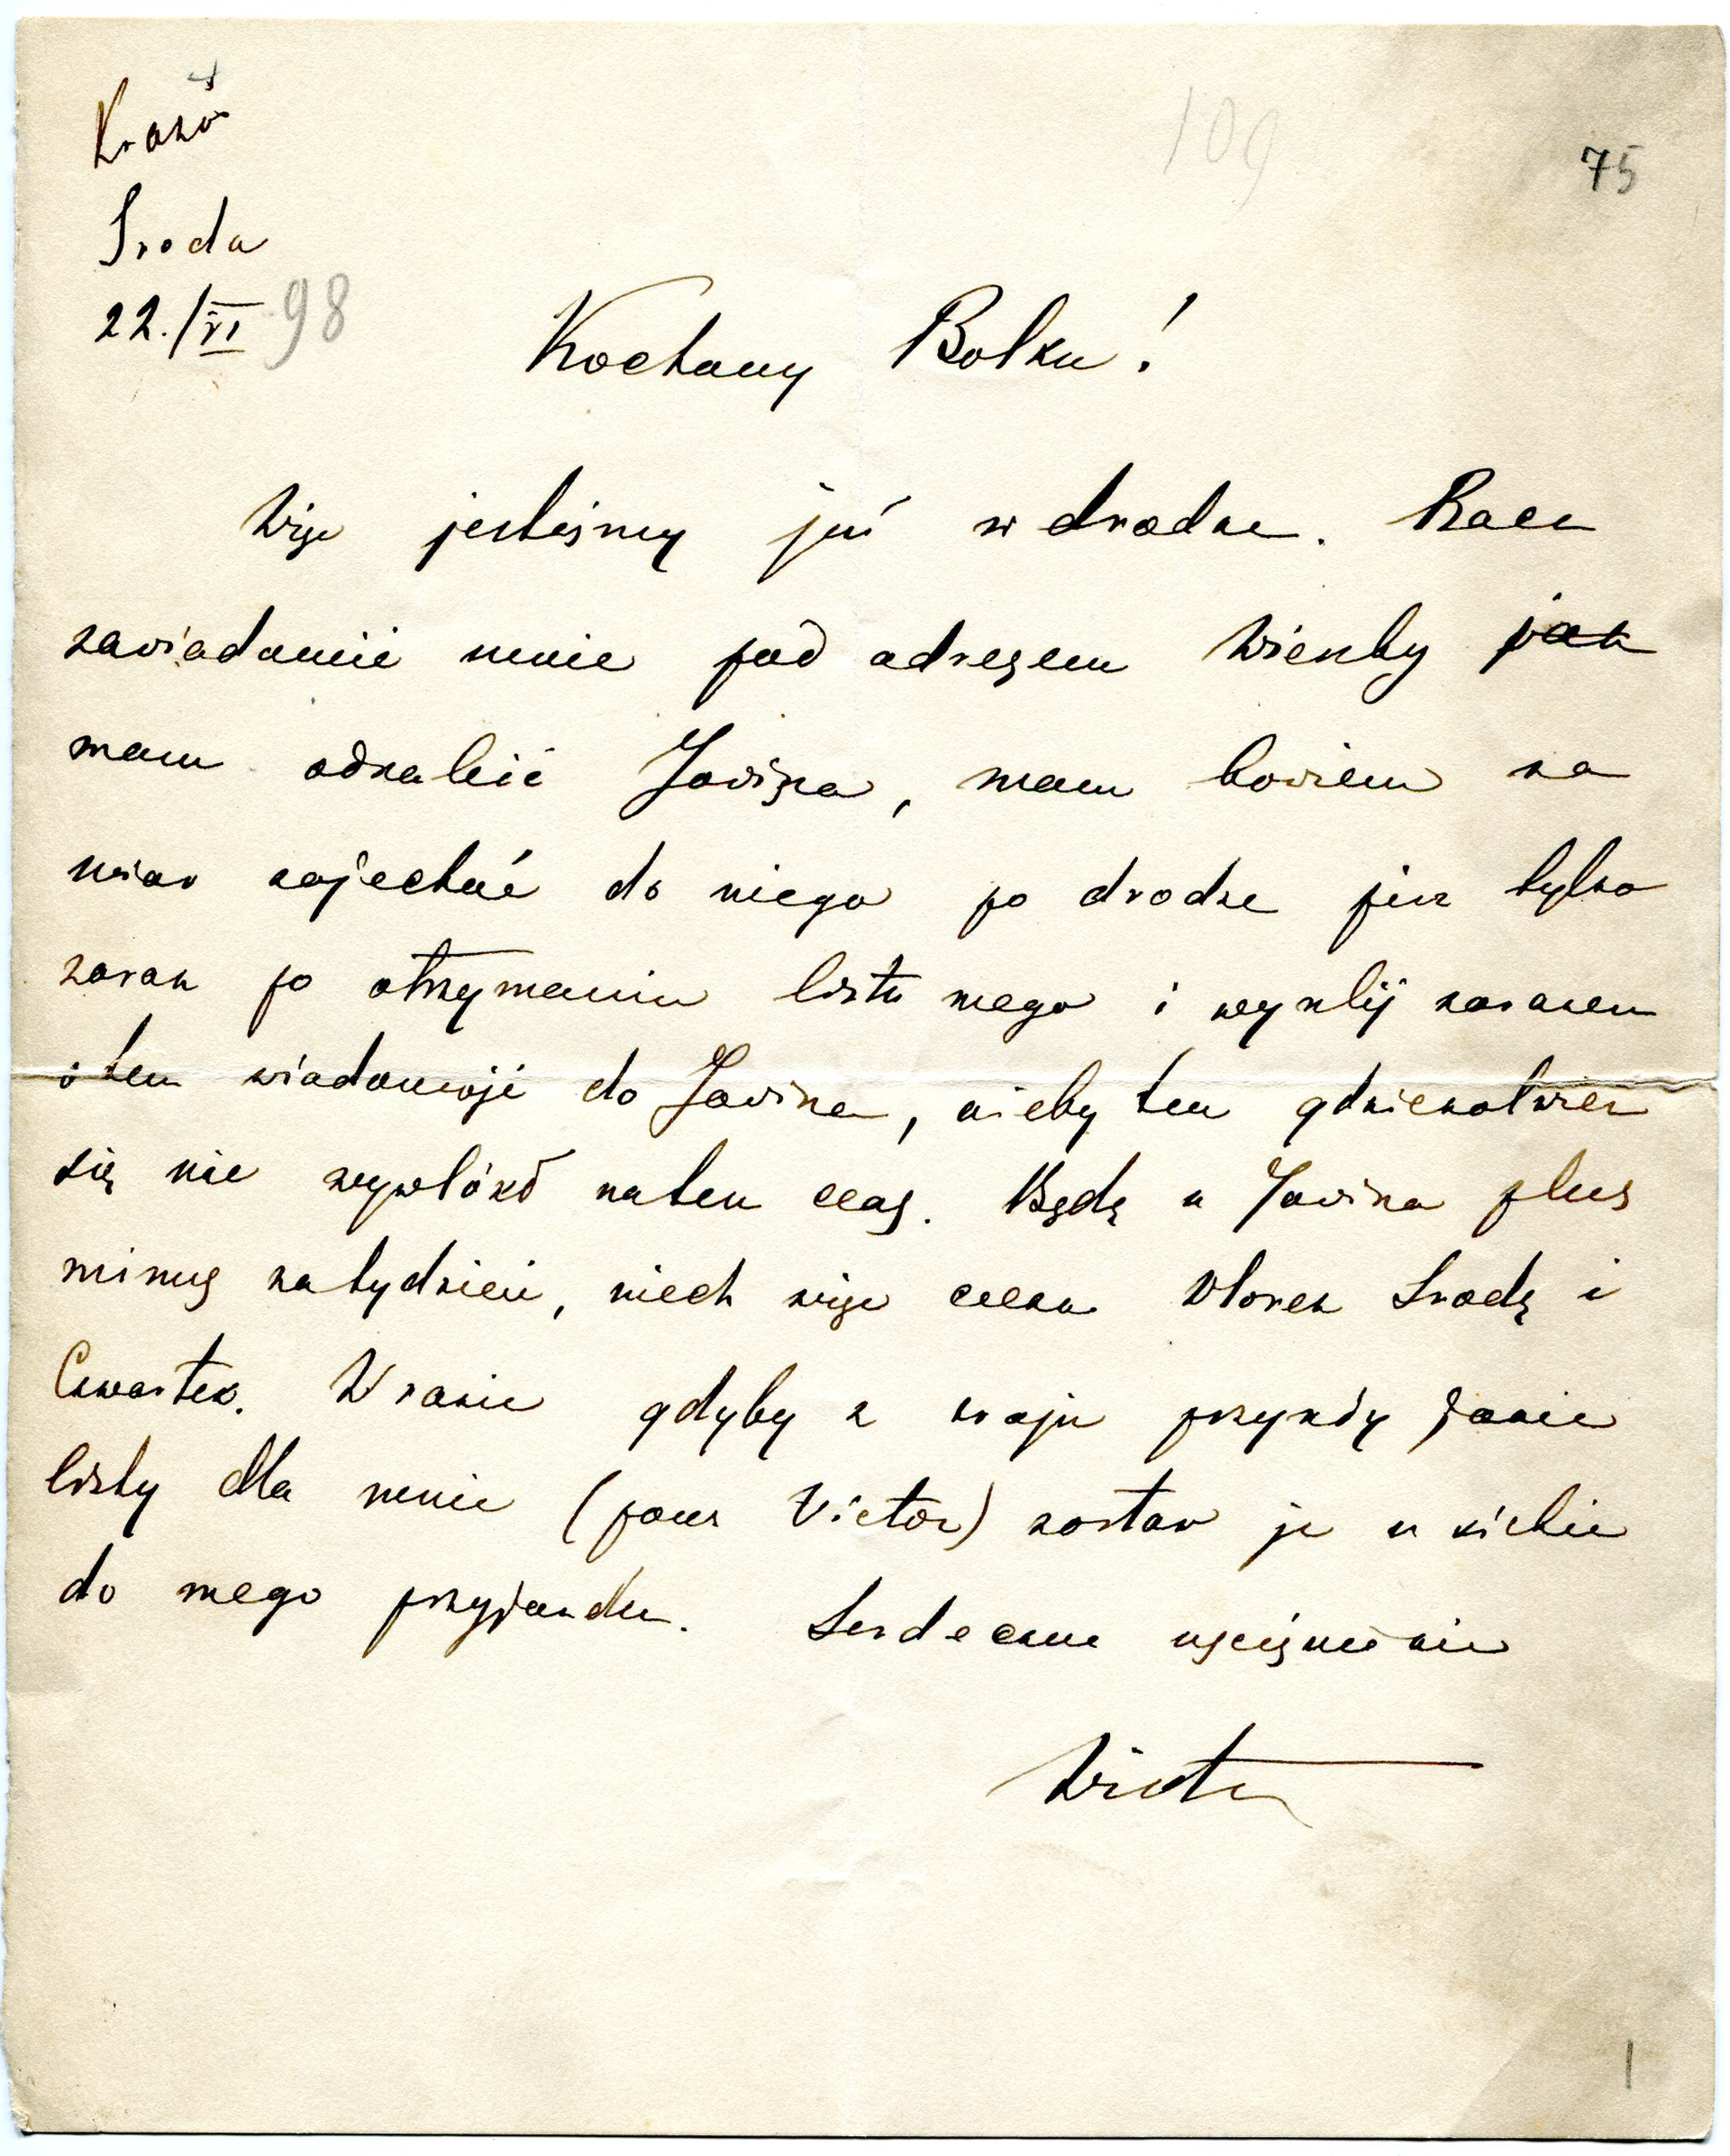 109
75
Kraków
Sroda
22./VI 98
Kochany Bolku!
Więc jesteśmy już w drodze. Racz
zawiadomić mnie pod adresem Wienby jak
mam odnaleić Jowisza, mam bowiem za
miar zajechać do niego po drodze pisz tylko
zaraz po otrzymaniu listu mego i wyslij zarazem
o tem wiadomość do Jowisza, ażeby ten gdziekolwiek
się nie wywlókł na ten czas. Będę u Jowisza plus
minus za tydzień, niech więc czeka Wtorek Srodę i
Czwartek. W razie gdyby z kraju przyszły jakie
listy dla mnie (pour Victor) zostaw je u siebie
do mego przyjazdu. Serdeczne uściśnienie
Wiktor
1